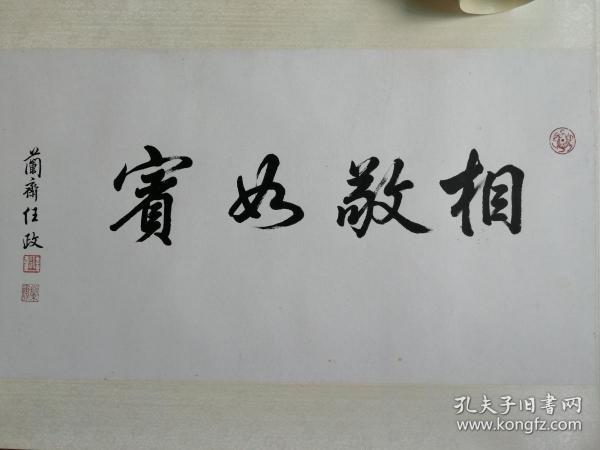 相敬如賓
蘭齋任政
孔夫子旧書网
www.kongfz.com